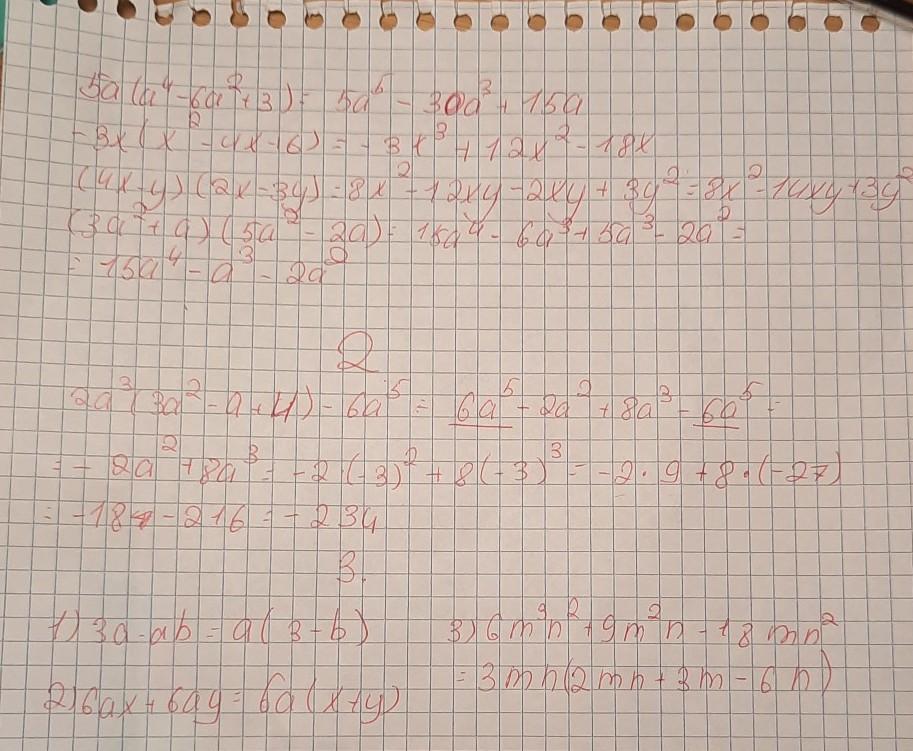 5a(a⁴-6a²+3)= 5a⁵ - 30a³+15a
-3x(x²-4x-6)=-3x³+12x²-18x
(4x-y)(2x-3y)=8x²-12xy-2xy+3y²=8x²-14xy+3y²
(3a²+a)(5a²-2a)=15a⁴-6a³+5a³-2a²=
=15a⁴-a³-2a²
2
2a³(3a²-a+4)-6a⁵=6a⁵-2a²+8a³-6a⁵=
=-2a²+8a³=-2·(-3)²+8(-3)³=-2·9+8·(-27)
=-18-216=-234
3.
1) 3a-ab=a(3-b)
2) 6ax+6ay=6a(x+y)
3) 6m²n²+9m²n-18mn²
=3mn(2mn+3m-6n)